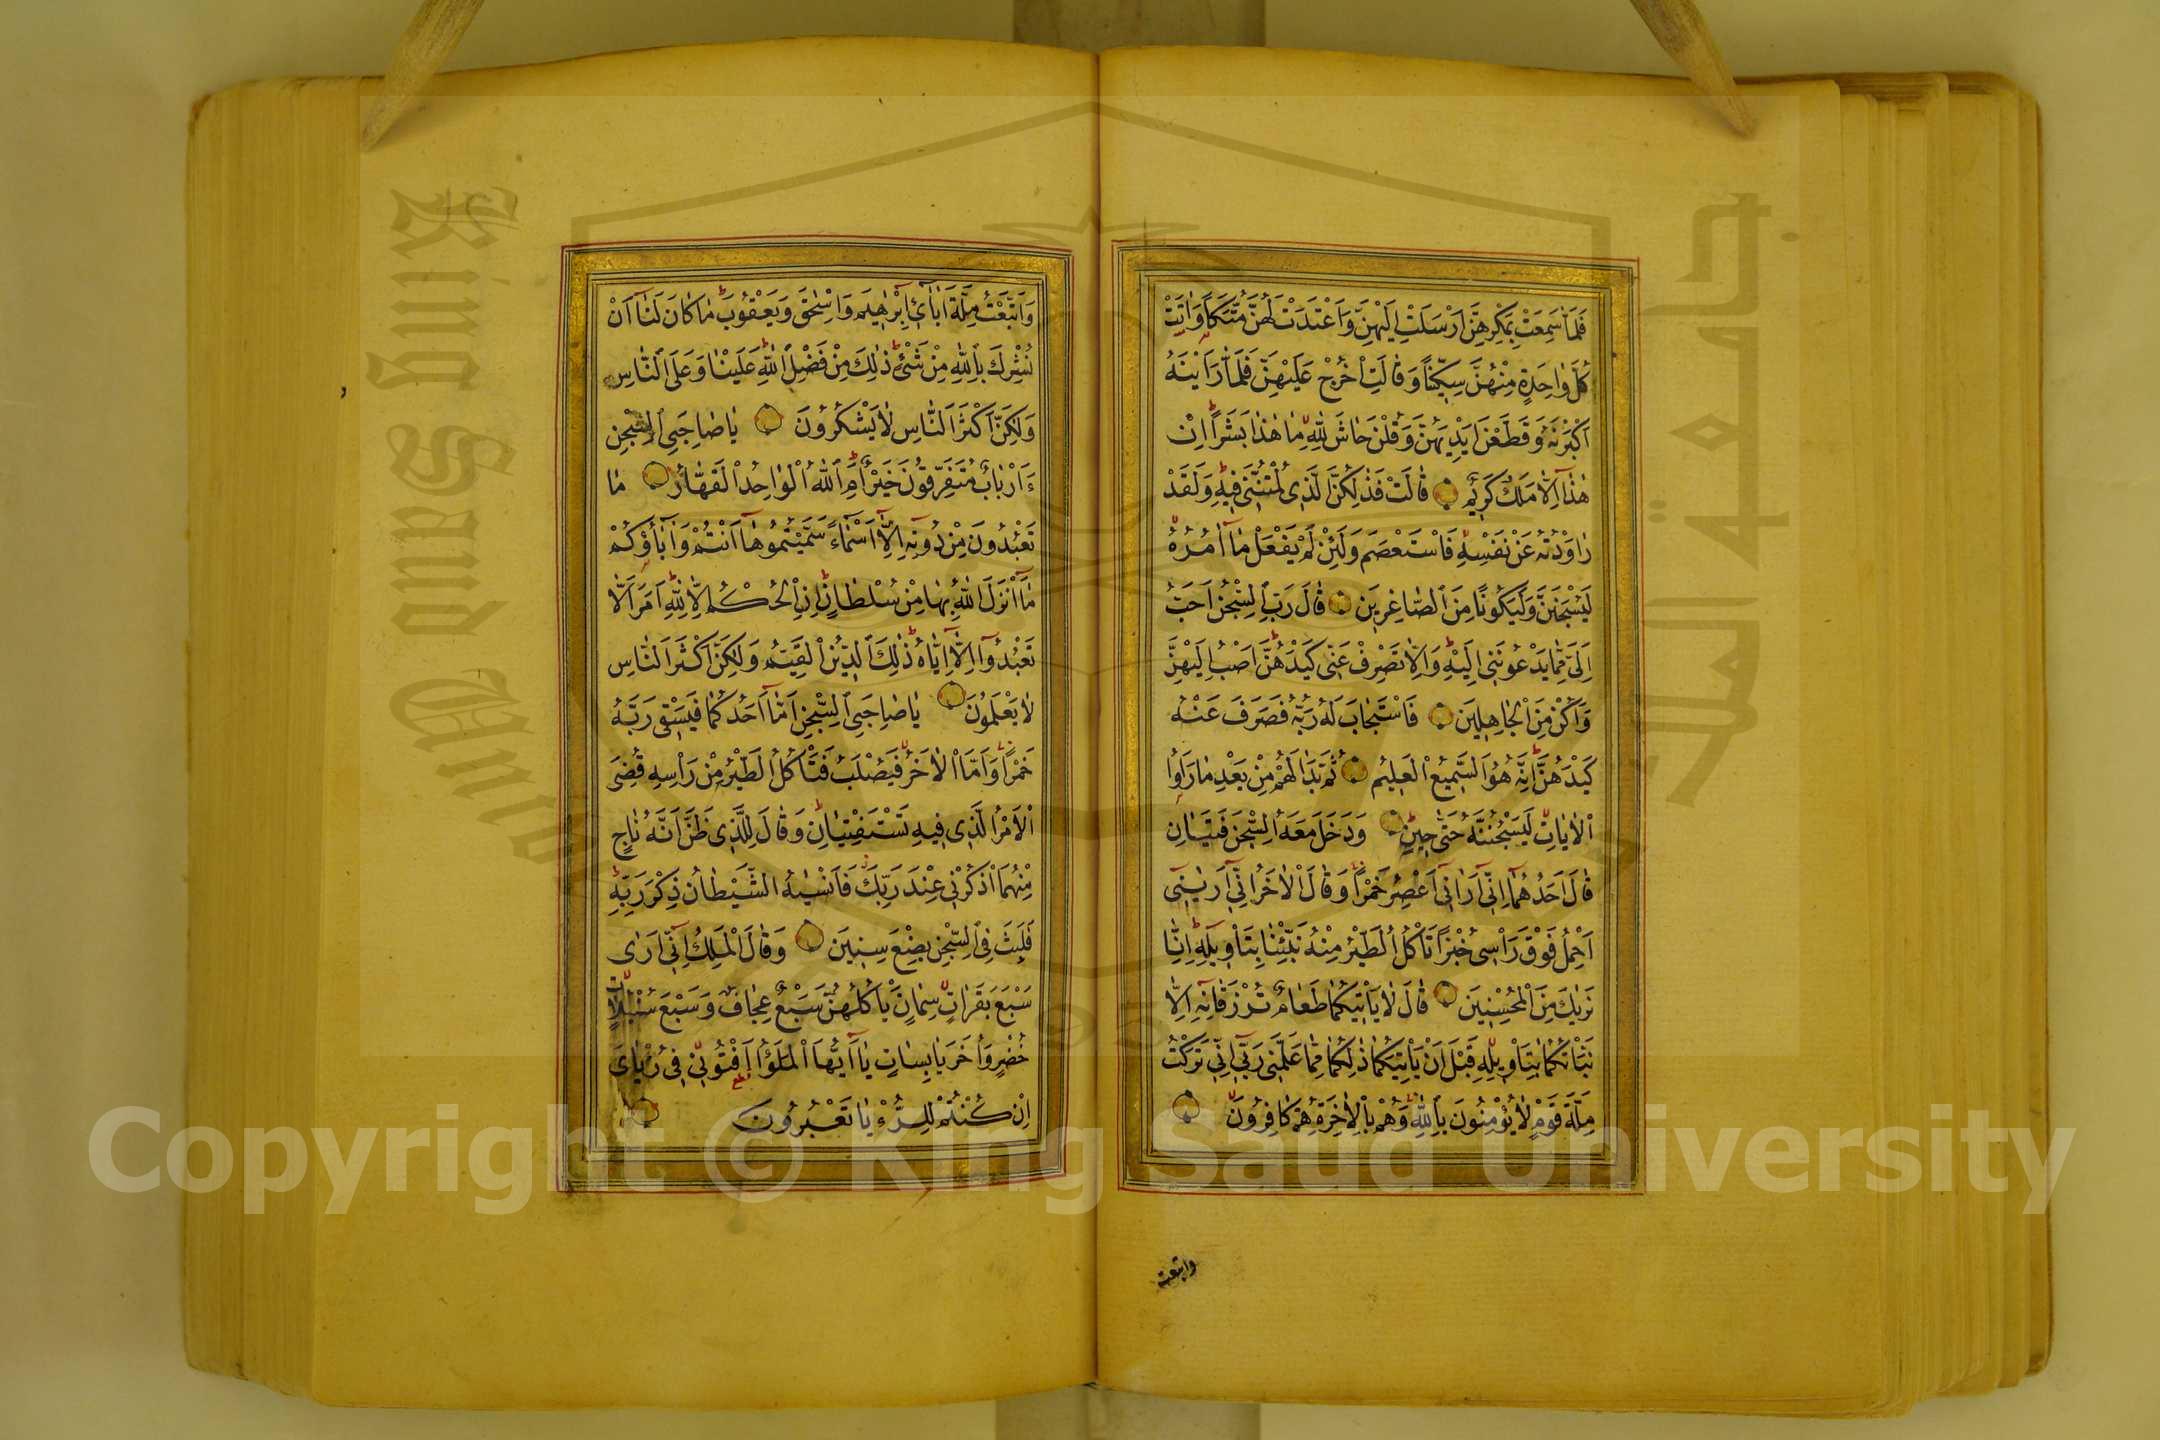 فَلَمَّا سَمِعَتْ بِمَكْرِهِنَّ اَرْسَلَتْ اِلَيْهِنَّ وَاَعْتَدَتْ لَهُنَّ مُتَّكَـًٔا وَاٰتَتْ
كُلَّ وَاحِدَةٍ مِنْهُنَّ سِكّٖينًا وَقَالَتِ اخْرُجْ عَلَيْهِنَّ فَلَمَّا رَاَيْنَهُ
اَكْبَرْنَهُ وَقَطَّعْنَ اَيْدِيَهُنَّ وَقُلْنَ حَاشَ لِلّٰهِ مَا هٰذَا بَشَرًا اِنْ
هٰذَا اِلَّا مَلَكٌ كَرٖيمٌ قَالَتْ فَذٰلِكُنَّ الَّذٖى لُمْتُنَّنٖى فٖيهِ وَلَقَدْ
رَاوَدْتُهُ عَنْ نَفْسِهٖ فَاسْتَعْصَمَ وَلَئِنْ لَمْ يَفْعَلْ مَا اٰمُرُهُ
لَيُسْجَنَنَّ وَلَيَكُونًا مِنَ الصَّاغِرٖينَ قَالَ رَبِّ السِّجْنُ اَحَبُّ
اِلَىَّ مِمَّا يَدْعُونَنٖى اِلَيْهِ وَاِلَّا تَصْرِفْ عَنّٖى كَيْدَهُنَّ اَصْبُ اِلَيْهِنَّ
وَاَكُنْ مِنَ الْجَاهِلٖينَ فَاسْتَجَابَ لَهُ رَبُّهُ فَصَرَفَ عَنْهُ
كَيْدَهُنَّ اِنَّهُ هُوَ السَّمٖيعُ الْعَلٖيمُ ثُمَّ بَدَا لَهُمْ مِنْ بَعْدِ مَا رَاَوُا
الْاٰيَاتِ لَيَسْجُنُنَّهُ حَتّٰى حٖينٍ وَدَخَلَ مَعَهُ السِّجْنَ فَتَيَانِ
قَالَ اَحَدُهُمَا اِنّٖى اَرَانٖى اَعْصِرُ خَمْرًا وَقَالَ الْاٰخَرُ اِنّٖى اَرٰينٖى
اَحْمِلُ فَوْقَ رَاْسٖى خُبْزًا تَاْكُلُ الطَّيْرُ مِنْهُ نَبِّئْنَا بِتَاْوٖيلِهٖ اِنَّا
نَرٰيكَ مِنَ الْمُحْسِنٖينَ قَالَ لَا يَاْتٖيكُمَا طَعَامٌ تُرْزَقَانِهٖ اِلَّا
نَبَّاْتُكُمَا بِتَاْوٖيلِهٖ قَبْلَ اَنْ يَاْتِيَكُمَا ذٰلِكُمَا مِمَّا عَلَّمَنٖى رَبّٖى اِنّٖى تَرَكْتُ
مِلَّةَ قَوْمٍ لَا يُؤْمِنُونَ بِاللّٰهِ وَهُمْ بِالْاٰخِرَةِ هُمْ كَافِرُونَ
واتبعت
وَاتَّبَعْتُ مِلَّةَ اٰبَائٖى اِبْرٰهٖيمَ وَاِسْحٰقَ وَيَعْقُوبَ مَا كَانَ لَنَا اَنْ
نُشْرِكَ بِاللّٰهِ مِنْ شَىْءٍ ذٰلِكَ مِنْ فَضْلِ اللّٰهِ عَلَيْنَا وَعَلَى النَّاسِ
وَلٰكِنَّ اَكْثَرَ النَّاسِ لَا يَشْكُرُونَ يَا صَاحِبَىِ السِّجْنِ
ءَاَرْبَابٌ مُتَفَرِّقُونَ خَيْرٌ اَمِ اللّٰهُ الْوَاحِدُ الْقَهَّارُ مَا
تَعْبُدُونَ مِنْ دُونِهٖ اِلَّا اَسْمَاءً سَمَّيْتُمُوهَا اَنْتُمْ وَاٰبَاؤُكُمْ
مَا اَنْزَلَ اللّٰهُ بِهَا مِنْ سُلْطَانٍ اِنِ الْحُكْمُ اِلَّا لِلّٰهِ اَمَرَ اَلَّا
تَعْبُدُوا اِلَّا اِيَّاهُ ذٰلِكَ الدّٖينُ الْقَيِّمُ وَلٰكِنَّ اَكْثَرَ النَّاسِ
لَا يَعْلَمُونَ يَا صَاحِبَىِ السِّجْنِ اَمَّا اَحَدُكُمَا فَيَسْقٖى رَبَّهُ
خَمْرًا وَاَمَّا الْاٰخَرُ فَيُصْلَبُ فَتَاْكُلُ الطَّيْرُ مِنْ رَاْسِهٖ قُضِىَ
الْاَمْرُ الَّذٖى فٖيهِ تَسْتَفْتِيَانِ وَقَالَ لِلَّذٖى ظَنَّ اَنَّهُ نَاجٍ
مِنْهُمَا اذْكُرْنٖى عِنْدَ رَبِّكَ فَاَنْسٰيهُ الشَّيْطَانُ ذِكْرَ رَبِّهٖ
فَلَبِثَ فِى السِّجْنِ بِضْعَ سِنٖينَ وَقَالَ الْمَلِكُ اِنّٖى اَرٰى
سَبْعَ بَقَرَاتٍ سِمَانٍ يَاْكُلُهُنَّ سَبْعٌ عِجَافٌ وَسَبْعَ سُنْبُلَاتٍ
خُضْرٍ وَاُخَرَ يَابِسَاتٍ يَا اَيُّهَا الْمَلَؤُا اَفْتُونٖى فٖى رُءْيَاىَ
اِنْ كُنْتُمْ لِلرُّءْيَا تَعْبُرُونَ
King Saud University
جامعة الملك
1957
Copyright © King Saud University